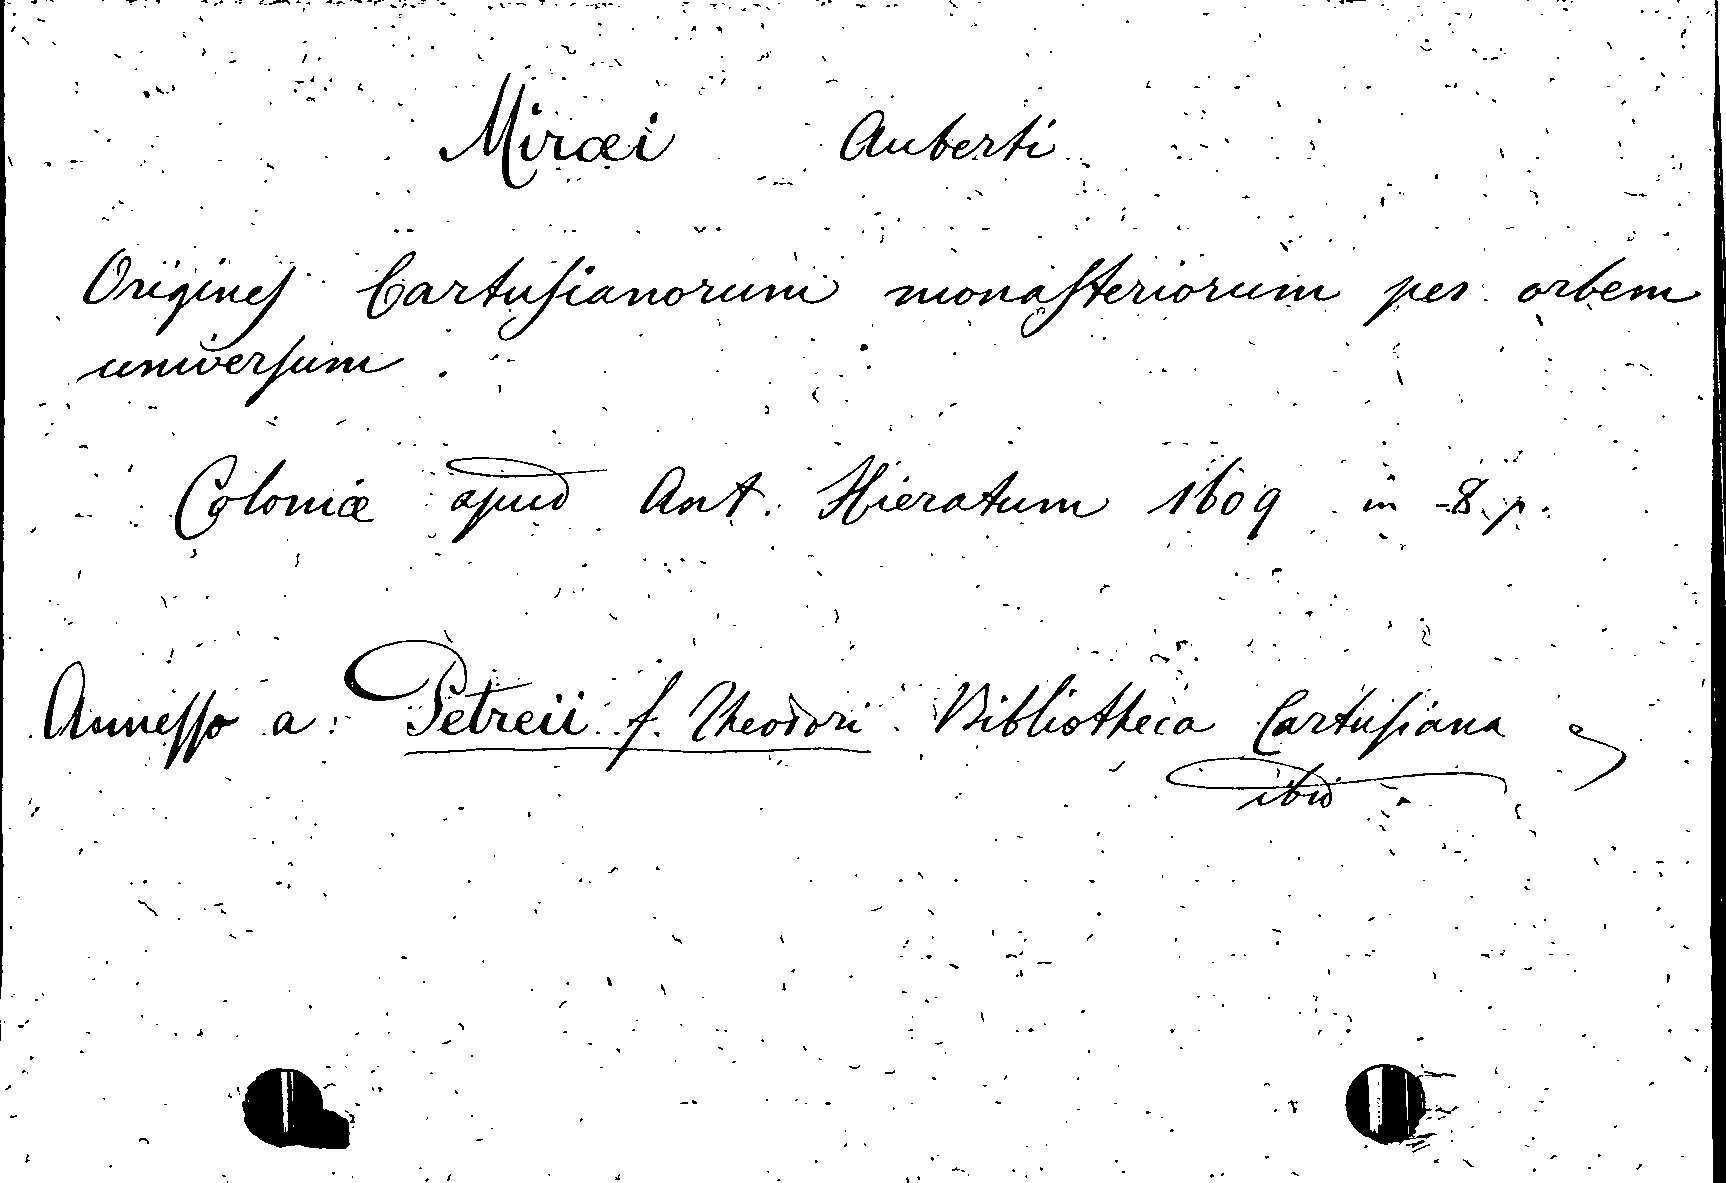 Miræi Auberti
Origines Cartusianorum monasteriorum per orbem
universum.
Coloniæ apud Ant. Hieratum 1609 in -8. p.
Annesso a: Petreii f. Theodori Bibliotheca Cartusiana
ibid